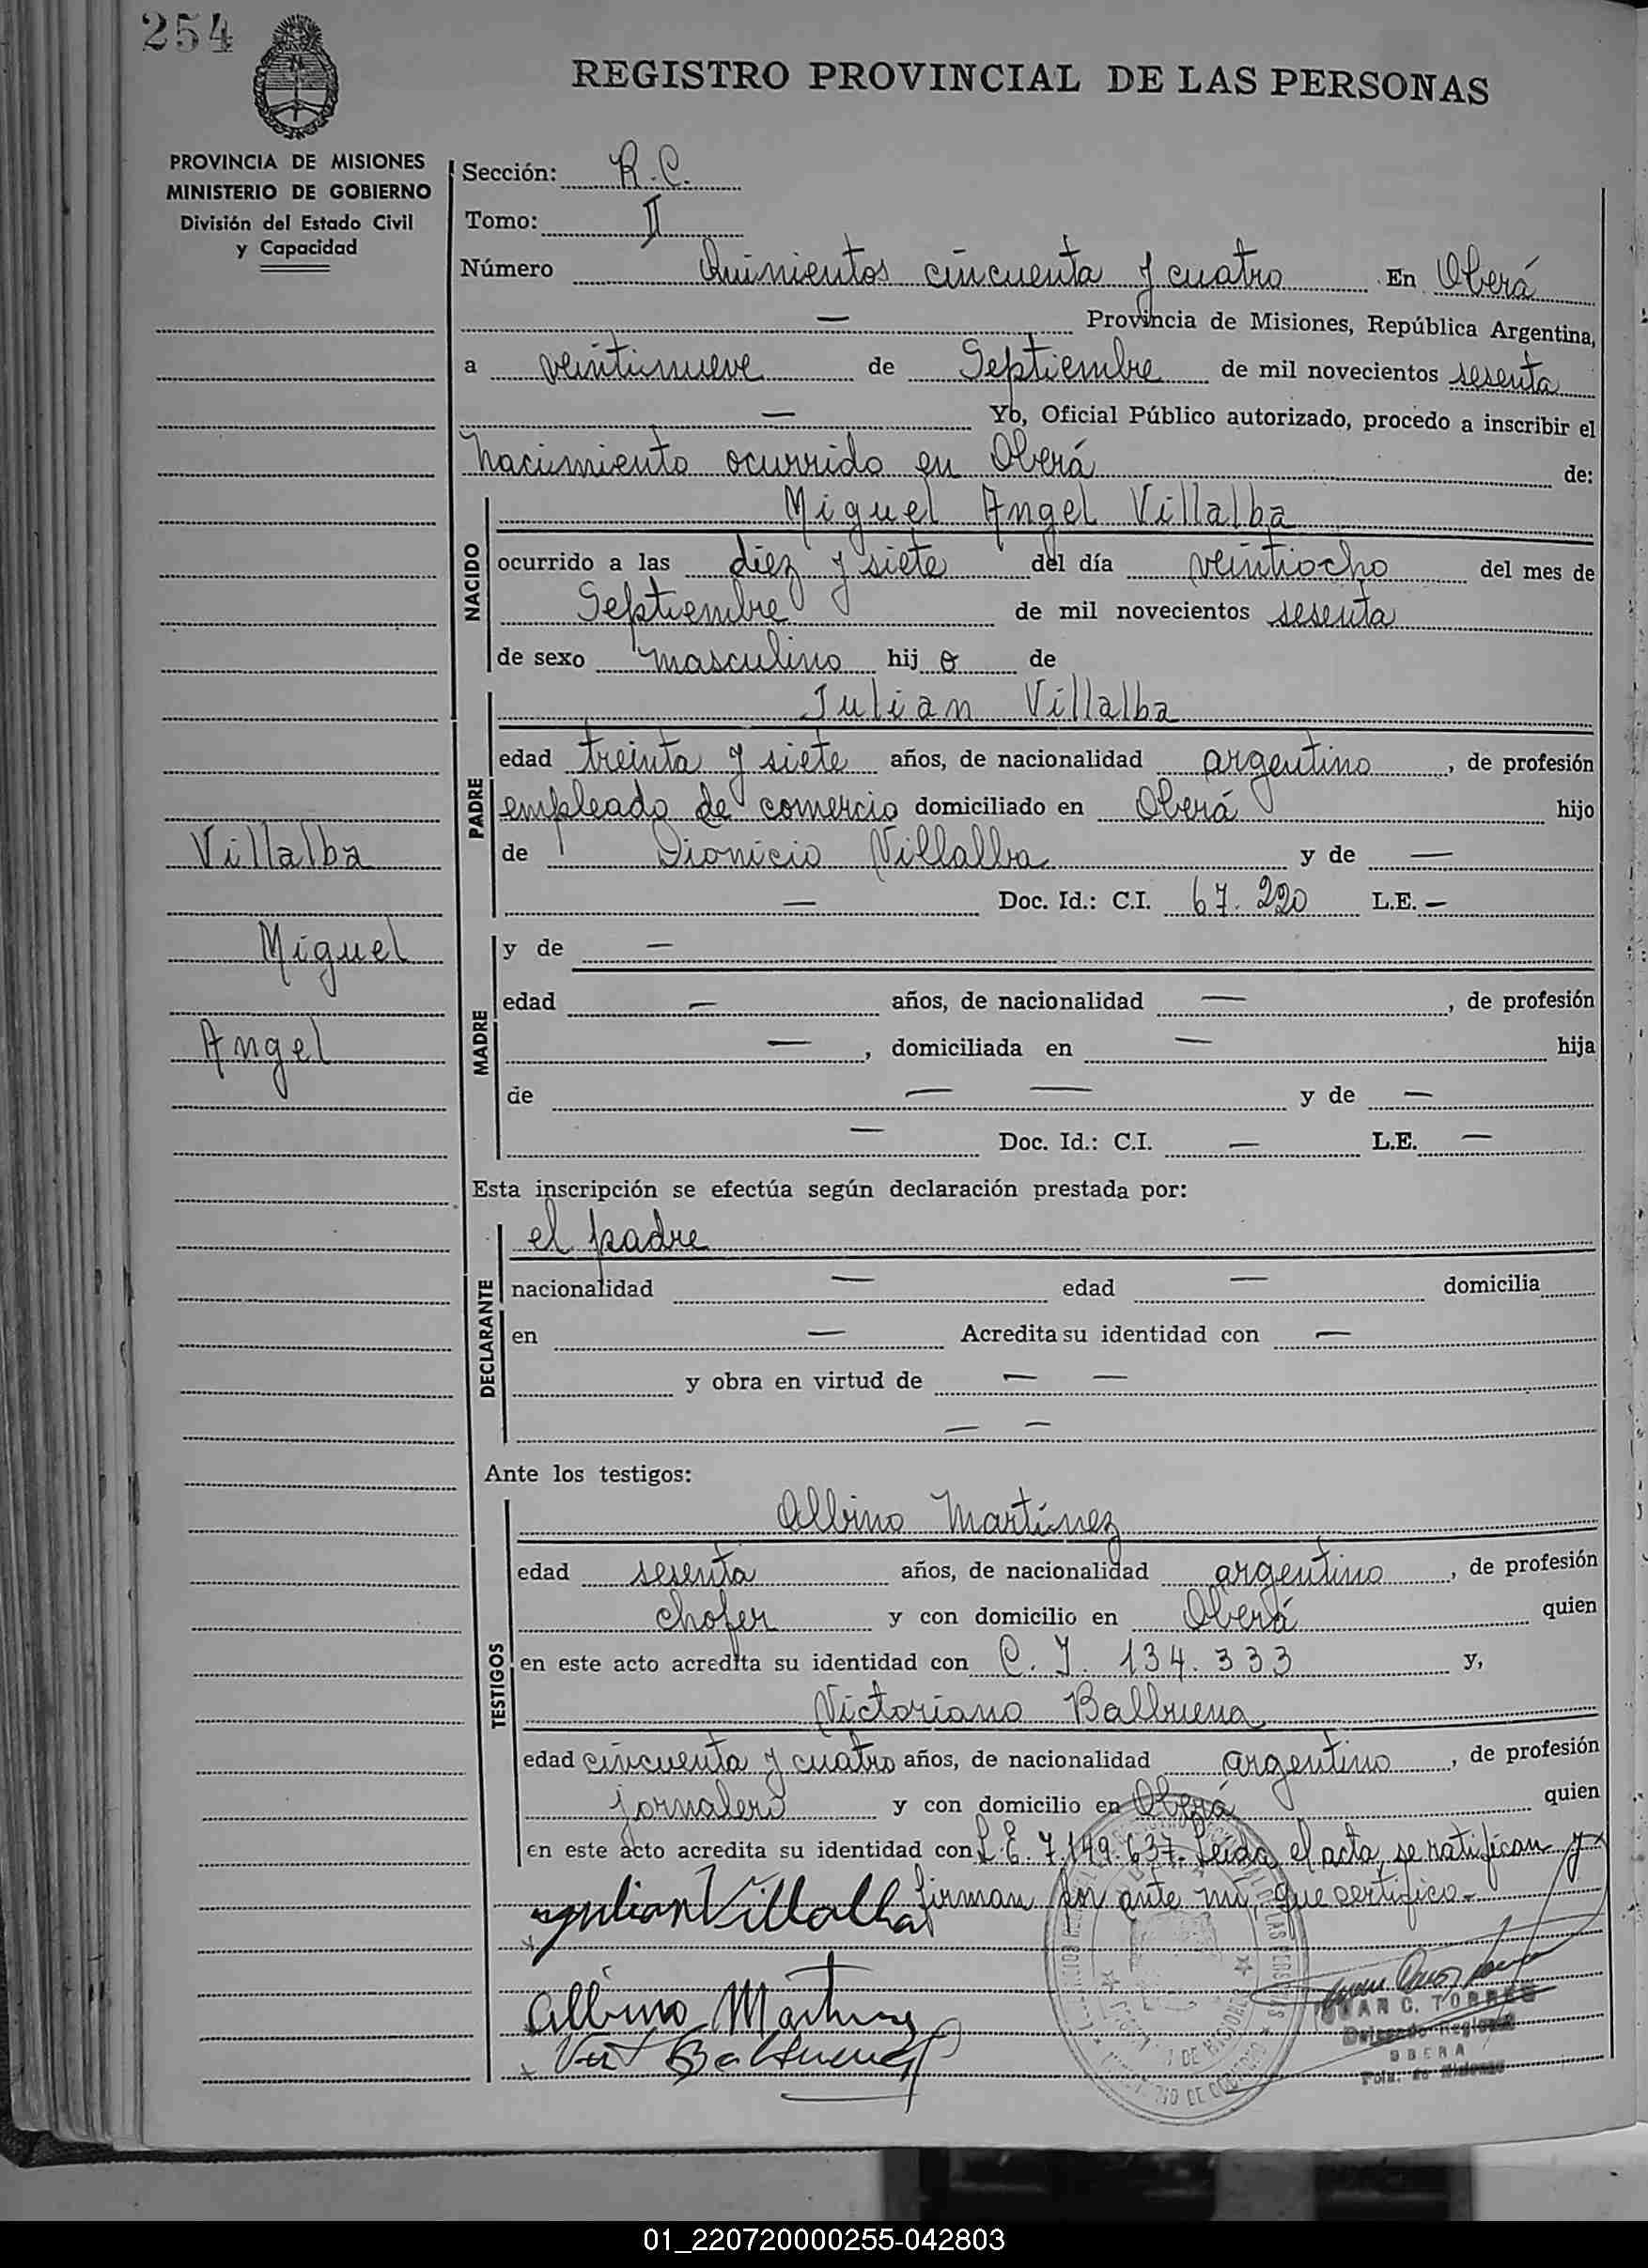 254
REGISTRO PROVINCIAL DE LAS PERSONAS
PROVINCIA DE MISIONES
MINISTERIO DE GOBIERNO
División del Estado Civil
y Capacidad
Sección: R.C.
Tomo: II
Número Quinientos cincuenta y cuatro En Oberá
— Provincia de Misiones, República Argentina,
a veintinueve de Septiembre de mil novecientos sesenta
— Yo, Oficial Público autorizado, procedo a inscribir el
nacimiento ocurrido en Oberá de:
NACIDO
Miguel Angel Villalba
ocurrido a las diez y siete del día veintiocho del mes de
Septiembre de mil novecientos sesenta
de sexo masculino hij o de
PADRE
Julian Villalba
edad treinta y siete años, de nacionalidad argentino, de profesión
empleado de comercio domiciliado en Oberá hijo
de Dionicio Villalba y de —
— Doc. Id.: C.I. 67.220 L.E. —
Villalba
Miguel
Angel
MADRE
y de —
edad — años, de nacionalidad —, de profesión
—, domiciliada en — hija
de — — y de —
— Doc. Id.: C.I. — L.E. —
Esta inscripción se efectúa según declaración prestada por:
DECLARANTE
el padre
nacionalidad — edad — domicilia
en — Acredita su identidad con —
y obra en virtud de — —
— —
Ante los testigos:
TESTIGOS
Albino Martínez
edad sesenta años, de nacionalidad argentino, de profesión
chofer y con domicilio en Oberá quien
en este acto acredita su identidad con C.I. 134.333 y,
Victoriano Balbuena
edad cincuenta y cuatro años, de nacionalidad argentino, de profesión
jornalero y con domicilio en Oberá quien
en este acto acredita su identidad con L.E. 7.149.637. Leída el acta, se ratifican y
firman por ante mi, que certifico.-
Julian Villalba
Albino Martinez
Vict Balbuena
JUAN C. TORRES
Delegado Regional
OBERA
Pcia. de Misiones
01_220720000255-042803